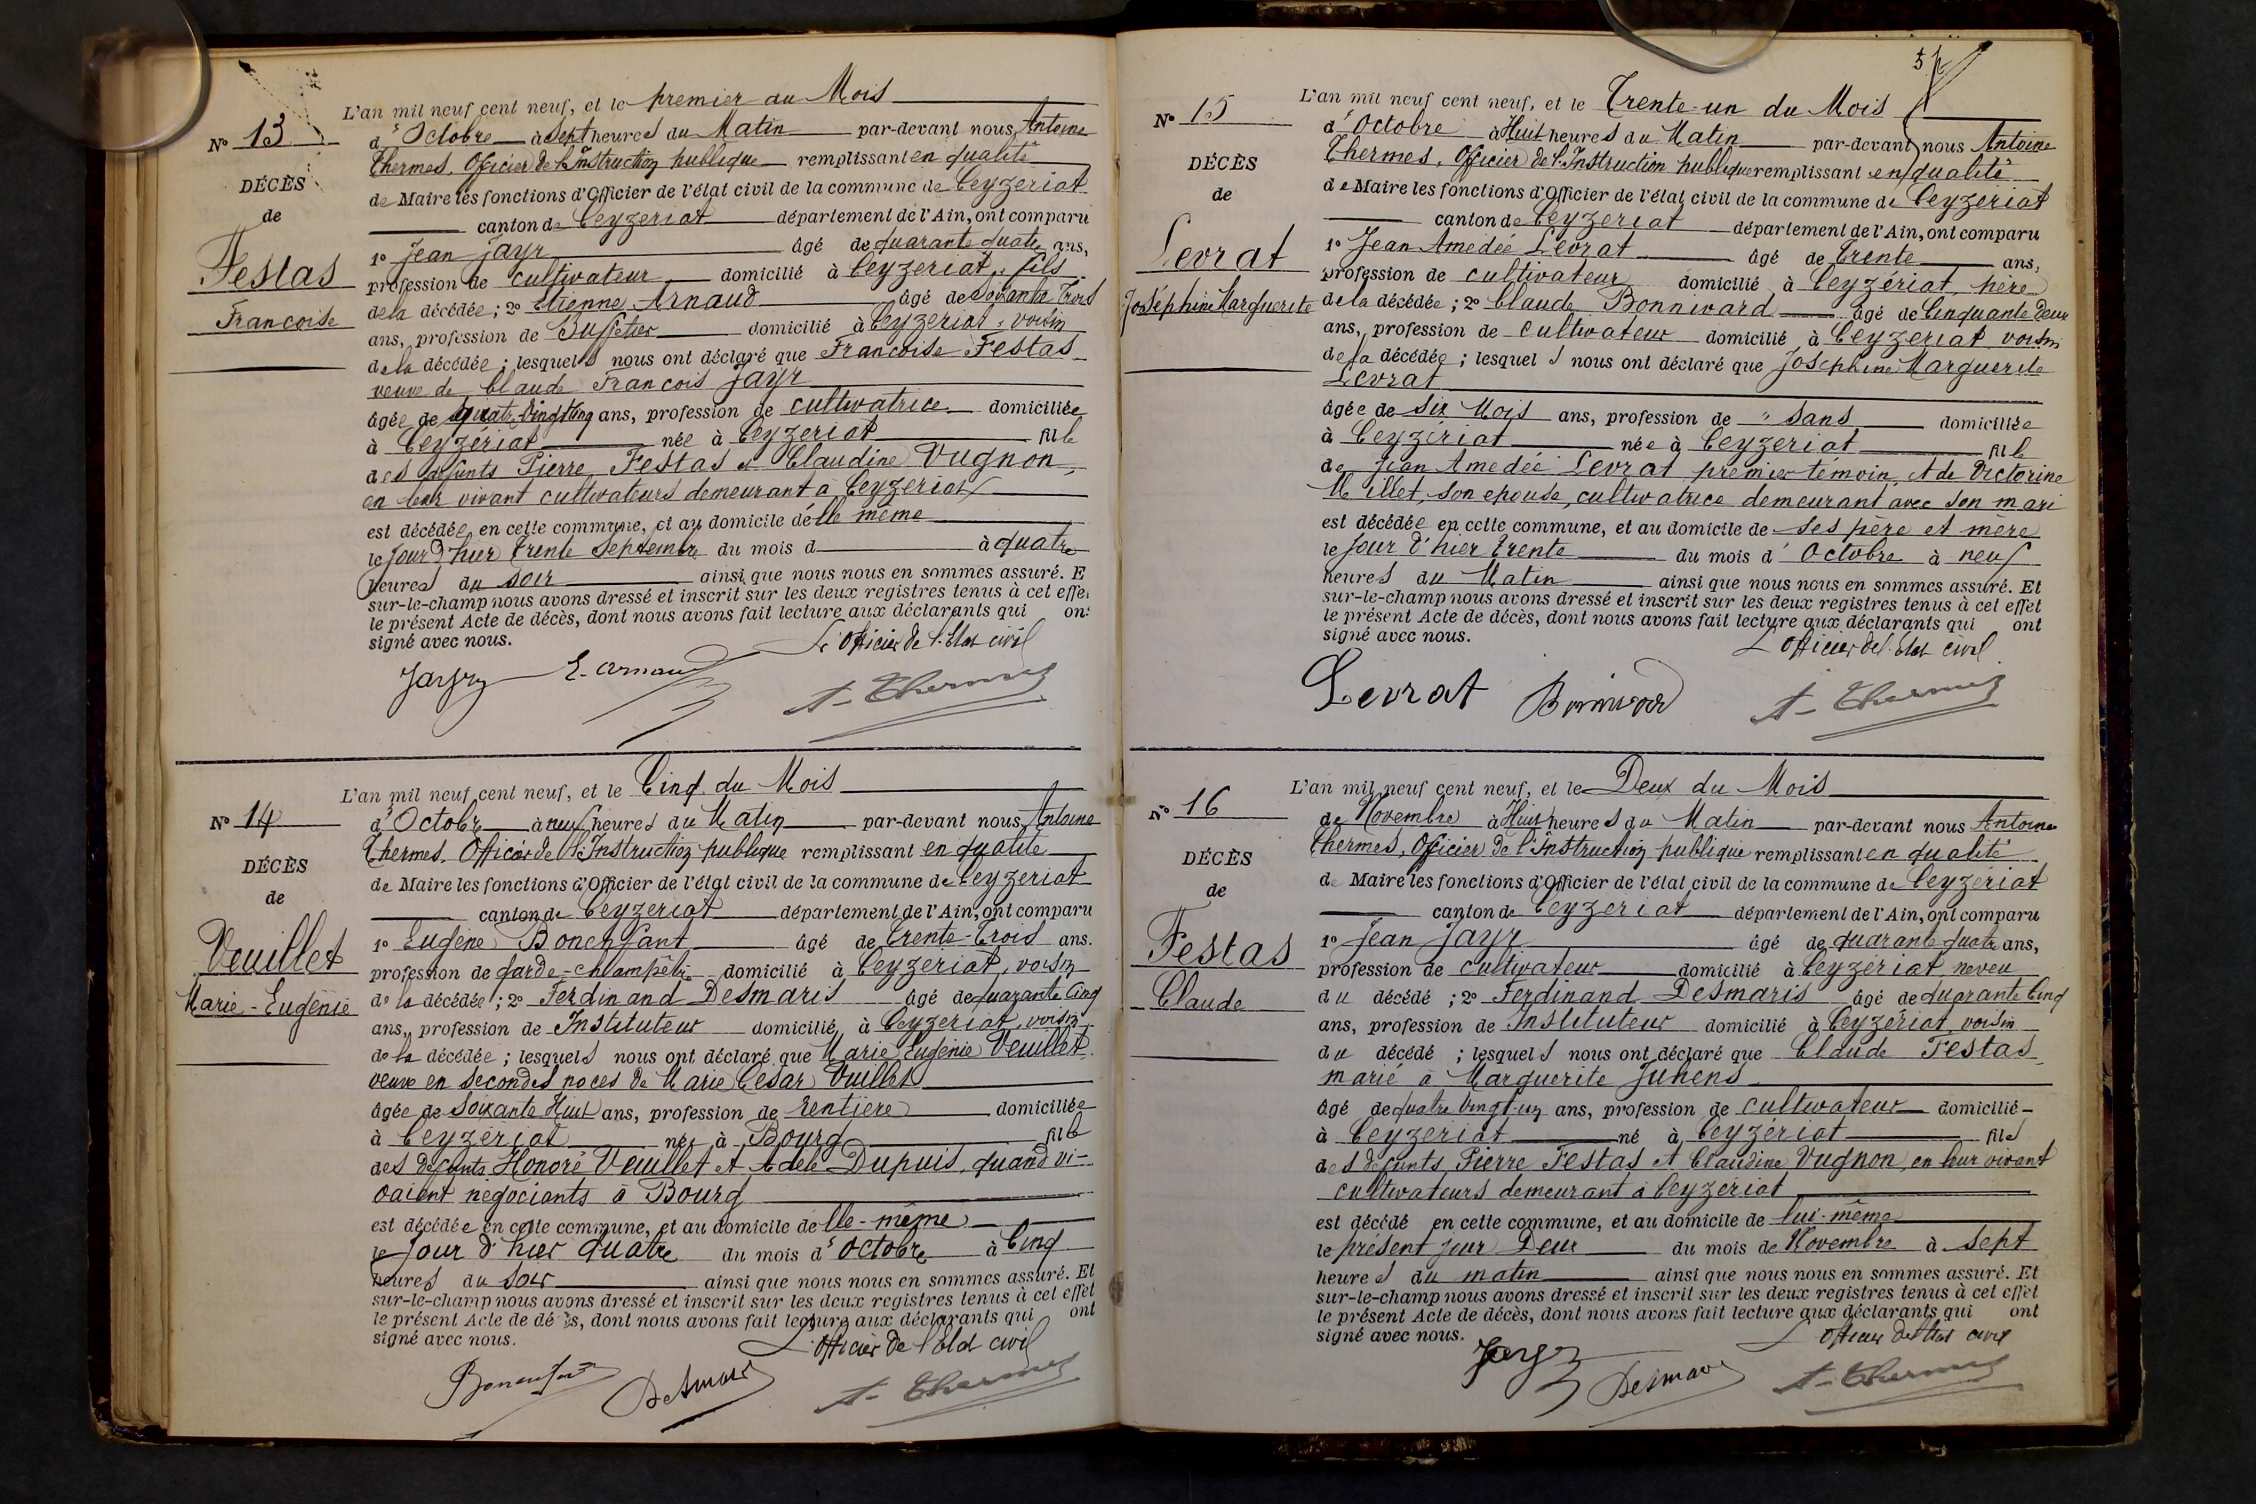 L'an mil neuf cent neuf, et le premier du Mois
N° 13
d'Octobre à sept heures du Matin par-devant nous, Antoine
Thermes, Officier de l'Instruction publique remplissant en qualité
DÉCÈS
de Maire les fonctions d'Officier de l'état civil de la commune de Ceyzeriat
de
canton de Ceyzeriat département de l'Ain, ont comparu
1° Jean Jayr âgé de quarante quatre ans,
Festas
profession de cultivateur domicilié à Ceyzeriat, fils
de la décédée ; 2° Etienne Arnaud âgé de soixante Trois
Francoise
ans, profession de Buffetier domicilié à Ceyzeriat, voisin
de la décédée ; lesquels nous ont déclaré que Francoise Festas
veuve de Claude Francois Jayr
âgée de quatre Vingt ans, profession de cultivatrice domiciliée
à Ceyzériat née à Ceyzeriat fille
des défunts Pierre Festas et Claudine Vugnon,
en leur vivant cultivateurs demeurant à Ceyzeriat
est décédée en cette commune, et au domicile d'elle même
le Jour d'hier Trente Septembre du mois d à quatre
heures du soir ainsi que nous nous en sommes assuré. E
sur-le-champ nous avons dressé et inscrit sur les deux registres tenus à cet effe
le présent Acte de décès, dont nous avons fait lecture aux déclarants qui on
signé avec nous. L'Officier de l'Etat civil
Jayr E. Arnaud A. Thermes
L'an mil neuf cent neuf, et le Cinq du Mois
N° 14
d'Octobre à neuf heures du Matin par-devant nous, Antoine
Thermes, Officier de l'Instruction publique remplissant en qualité
DÉCÈS
de Maire les fonctions d'Officier de l'état civil de la commune de Ceyzeriat
de
canton de Ceyzeriat département de l'Ain, ont comparu
1° Eugène Bonenfant âgé de Trente-Trois ans.
Veuillet
profession de garde-champêtre domicilié à Ceyzeriat, voisin
Marie-Eugénie
de la décédée ; 2° Ferdinand Desmaris âgé de quarante Cinq
ans, profession de Instituteur domicilié à Ceyzeriat, voisin
de la décédée ; lesquels nous ont déclaré que Marie Eugénie Veuillet
veuve en secondes noces de Marie César Vuillet
âgée de Soixante Huit ans, profession de rentière domiciliée
à Ceyzériat née à Bourg fille
des défunts Honoré Veuillet et Adèle Dupuis, quand vi-
vaient négociants à Bourg
est décédée en cette commune, et au domicile d'elle-même
le Jour d'hier quatre du mois d'Octobre à Cinq
heures du soir ainsi que nous nous en sommes assuré. Et
sur-le-champ nous avons dressé et inscrit sur les deux registres tenus à cet effet
le présent Acte de décès, dont nous avons fait lecture aux déclarants qui ont
signé avec nous. L'Officier de l'Etat civil
Bonenfant Desmaris A. Thermes
L'an mil neuf cent neuf, et le Trente-un du Mois
N° 15
d'Octobre à Huit heures du Matin par-devant nous Antoine
Thermes, Officier de l'Instruction publique remplissant en qualité
DÉCÈS
de Maire les fonctions d'Officier de l'état civil de la commune de Ceyzériat
de
canton de Ceyzeriat département de l'Ain, ont comparu
1° Jean Amedée Levrat âgé de Trente ans,
Levrat
profession de cultivateur domicilié à Ceyzériat, père
Joséphine Marguerite
de la décédée ; 2° Claude Bonnivard âgé de Cinquante Deux
ans, profession de cultivateur domicilié à Ceyzeriat voisin
de la décédée ; lesquels nous ont déclaré que Josephine Marguerite
Levrat
âgée de six Mois ans, profession de " sans domiciliée
à Ceyzériat née à Ceyzeriat fille
de Jean Amedée Levrat premier temoin, et de Victorine
Millet, son epouse, cultivatrice demeurant avec son mari
est décédée en cette commune, et au domicile de ses père et mère
le Jour d'hier Trente du mois d'Octobre à neuf
heures du Matin ainsi que nous nous en sommes assuré. Et
sur-le-champ nous avons dressé et inscrit sur les deux registres tenus à cet effet
le présent Acte de décès, dont nous avons fait lecture aux déclarants qui ont
signé avec nous. L'Officier de l'Etat civil
Levrat Bonnivard A. Thermes
L'an mil neuf cent neuf, et le Deux du Mois
N° 16
de Novembre à Huit heures du Matin par-devant nous Antoine
Thermes, Officier de l'Instruction publique remplissant en qualité
DÉCÈS
de Maire les fonctions d'Officier de l'état civil de la commune de Ceyzeriat
de
canton de Ceyzeriat département de l'Ain, ont comparu
1° Jean Jayr âgé de quarante quatre ans,
Festas
profession de cultivateur domicilié à Ceyzériat neveu
Claude
du décédé ; 2° Ferdinand Desmaris âgé de quarante Cinq
ans, profession de Instituteur domicilié à Ceyzériat, voisin
du décédé ; lesquels nous ont déclaré que Claude Festas
marié à Marguerite
âgé de quatre Vingt-un ans, profession de cultivateur domicilié
à Ceyzeriat né à Ceyzériat fils
des défunts Pierre Festas et Claudine Vugnon, en leur vivant
cultivateurs demeurant à Ceyzériat
est décédé en cette commune, et au domicile de lui-même
le présent jour Deux du mois de Novembre à sept
heures du matin ainsi que nous nous en sommes assuré. Et
sur-le-champ nous avons dressé et inscrit sur les deux registres tenus à cet effet
le présent Acte de décès, dont nous avons fait lecture aux déclarants qui ont
signé avec nous. L'Officier de l'Etat civil
Jayr Desmaris A. Thermes